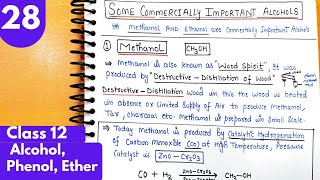 28
Class 12
Alcohol,
Phenol, Ether
SOME COMMERCIALLY IMPORTANT ALCOHOLS
Methanol AND Ethanol are Commercially Important Alcohols
① Methanol CH3OH
→ Methanol is also known as "Wood Spirit", It was
produced by "Destructive - Distillation of Wood"
Destructive - Distillation wood in this the wood is heated
in absence or Limited Supply of Air to produce methanol,
Tar, charcoal etc. Methanol is prepared in Small Scale.
→ Today methanol is produced by Catalytic Hydrogenation
of Carbon monoxide (CO) at High Temperature, Pressure
Catalyst is Zno - Cr2O3
CO + H2 Zno - Cr2O3 CH3OH